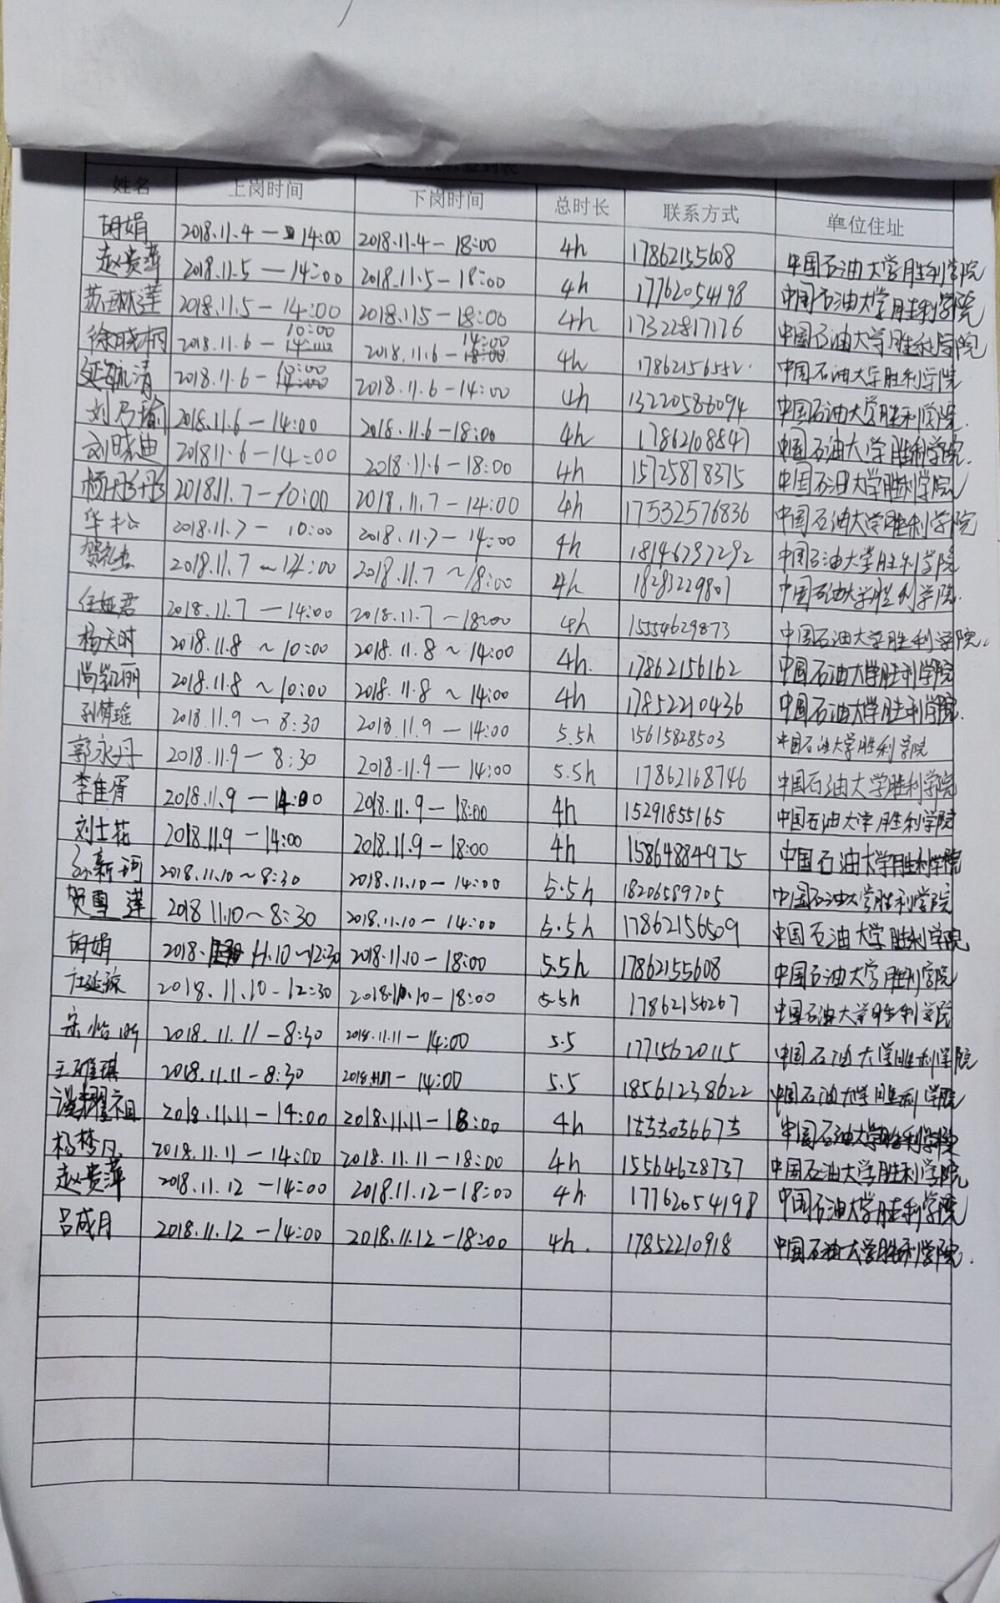 姓名 上岗时间 下岗时间 总时长 联系方式 单位住址
胡娟 2018.11.4-14:00 2018.11.4-18:00 4h 17862155608 中国石油大学胜利学院
赵贵萍 2018.11.5-14:00 2018.11.5-18:00 4h 17762054198 中国石油大学胜利学院
苏琳莲 2018.11.5-14:00 2018.115-18:00 4h 17322817176 中国石油大学胜利学院
徐晓桐 2018.11.6-10:00 2018.11.6-14:00 4h 17862156552. 中国石油大学胜利学院
2018.11.6-10:00 2018.11.6-14:00 4h 13220586094 中国石油大学胜利学院.
刘乃瑜 2018.11.6-14:00 2018.11.6-18:00 4h 17862108847 中国石油大学胜利学院.
刘晓迪 201811.6-14:00 2018.11.6-18:00 4h 15725878375 中国石油大学胜利学院
杨彤彤 2018.11.7-10:00 2018.11.7-14:00 4h 17532576836 中国石油大学胜利学院
华松 2018.11.7-10:00 2018.11.7-14:00 4h 18146737292 中国石油大学胜利学院
2018.11.7~14:00 2018.11.7~18:00 4h 18283229801 中国石油大学胜利学院.
任娅君 2018.11.7-14:00 2018.11.7-18:00 4h 15554629873 中国石油大学胜利学院.
杨天时 2018.11.8~10:00 2018.11.8~14:00 4h. 17862156162 中国石油大学胜利学院
尚凯丽 2018.11.8~10:00 2018.11.8~14:00 4h 17852210436 中国石油大学胜利学院.
孙倩瑶 2018.11.9-8:30 2018.11.9-14:00 5.5h 15615828503 中国石油大学胜利学院
郭永丹 2018.11.9-8:30 2018.11.9-14:00 5.5h 17862168746 中国石油大学胜利学院
李佳胥 2018.11.9-14:00 2018.11.9-18:00 4h 15291855165 中国石油大学胜利学院
刘士花 2018.11.9-14:00 2018.11.9-18:00 4h 15864884975 中国石油大学胜利学院
孙新珂 2018.11.10~8:30 2018.11.10-14:00 5.5h 18206589705 中国石油大学胜利学院
贺雪莲 2018 11.10~8:30 2018.11.10-14:00 5.5h 17862156509 中国石油大学胜利学院
胡娟 2018.11.10-12:30 2018.11.10-18:00 5.5h 17862155608 中国石油大学胜利学院
2018.11.10-12:30 2018.10.10-18:00 5.5h 17862156267 中国石油大学胜利学院
宋怡昕 2018.11.11-8:30 2018.11.11-14:00 5.5 17715620115 中国石油大学胜利学院
王雅琪 2018.11.11-8:30 2018.11.11-14:00 5.5 18561238622 中国石油大学胜利学院
2018.11.11-14:00 2018.11.11-18:00 4h 15553056675 中国石油大学胜利学院
杨梦凡 2018.11.11-14:00 2018.11.11-18:00 4h 15564628737 中国石油大学胜利学院
赵贵萍 2018.11.12-14:00 2018.11.12-18:00 4h 17762054198 中国石油大学胜利学院
吕成月 2018.11.12-14:00 2018.11.12-18:00 4h. 17852210918 中国石油大学胜利学院.